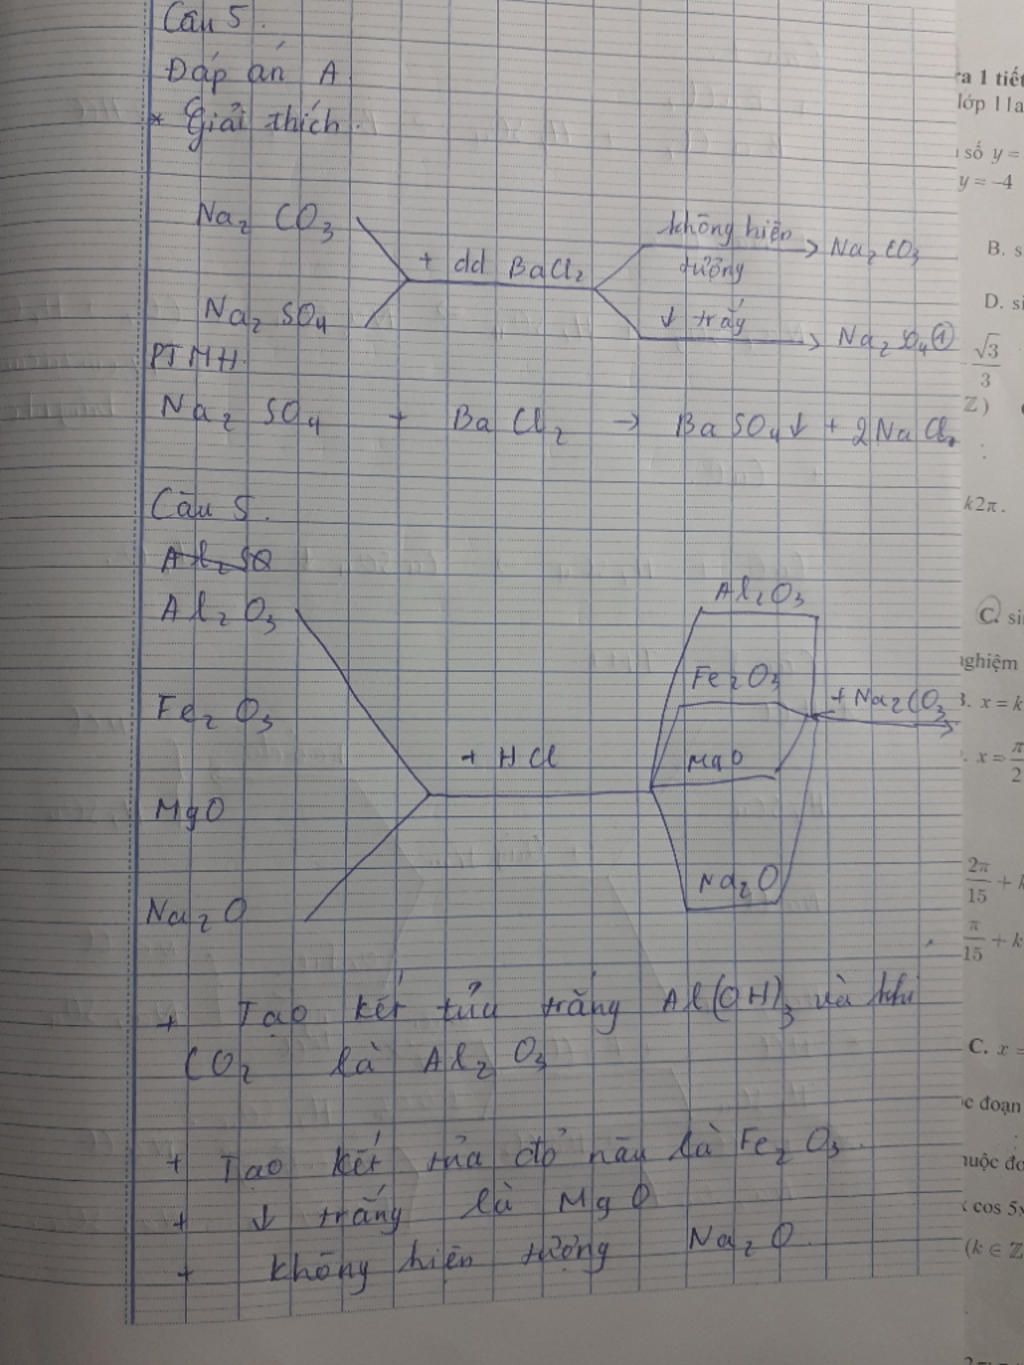 Câu 5.
Đáp án A
* Giải thích.
Na₂ CO₃
Na₂ SO₄
+ dd BaCl₂
không hiện
tượng
Na₂CO₃
↓ trắg
Na₂SO₄ ①
PTMH.
Na₂ SO₄ + BaCl₂ → BaSO₄↓ + 2NaCl.
Câu 5.
Al₂O₃
Fe₂ O₃
MgO
Na₂O
+ HCl
Al₂O₃
Fe₂O₃
MgO
Na₂O
+ Na₂CO₃
+ Tạo kết tủu trắng Al(OH)₃ và khí
CO₂ là Al₂ O₃
+ Tạo kết tủa đỏ nâu là Fe₂ O₃.
+ ↓ trắng là MgO
+ không hiện tượng Na₂O.
ra 1 tiết
lớp 11a
số y =
y = –4
B. s
D. si
√3
3
ℤ)
k2π.
C. si
nghiệm
3. x = k
x = π
2
2π
15 + k
π
15 + k
C. x =
đoạn
cos 5x
(k ∈ ℤ